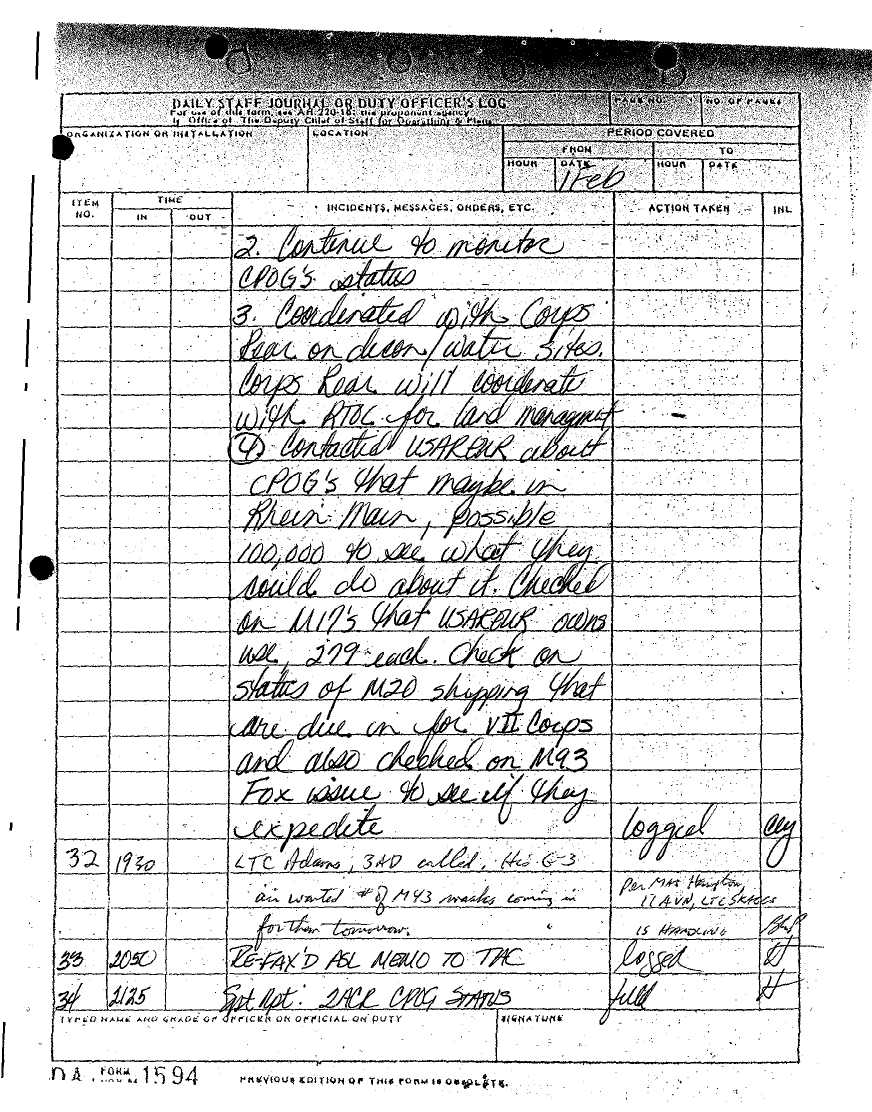 DAILY STAFF JOURNAL OR DUTY OFFICER'S LOG
PAGE NO.
NO. OF PAGES
For use of this form, see AR 220-15; the proponent agency
is Office of The Deputy Chief of Staff for Operations & Plans.
ORGANIZATION OR INSTALLATION
LOCATION
PERIOD COVERED
FROM
TO
HOUR
DATE
HOUR
DATE
1 Feb
ITEM NO.
TIME
INCIDENTS, MESSAGES, ORDERS, ETC.
ACTION TAKEN
INL
IN
OUT
2. Continue to monitor
CPOG's status
3. Coordinated with Corps
Rear on decon/water sites.
Corps Rear will coordinate
with RTOC for land managment
4 Contacted USAREUR about
CPOG's that maybe in
Rhein Main, possible
100,000 to see what they
could do about it. Checked
on M17's that USAREUR owns
use, 279 each. Check on
status of M20 shipping that
are due in for VII Corps
and also checked on M93
Fox issue to see if they
expedite
logged
32 1930 LTC Adams, 3AD called, His G-3
air wanted # of M43 masks coming in
for them tomorrow.
Per MAJ Hampton,
17 AVN, LTC SKAGGS
IS HANDLING
33 2050 RE-FAX'D ASL MEMO TO TAC logged
34 2125 Spt Rpt: 2ACR CPOG STATUS
TYPED NAME AND GRADE OF OFFICER OR OFFICIAL ON DUTY
SIGNATURE
DA FORM 1594
PREVIOUS EDITION OF THIS FORM IS OBSOLETE.